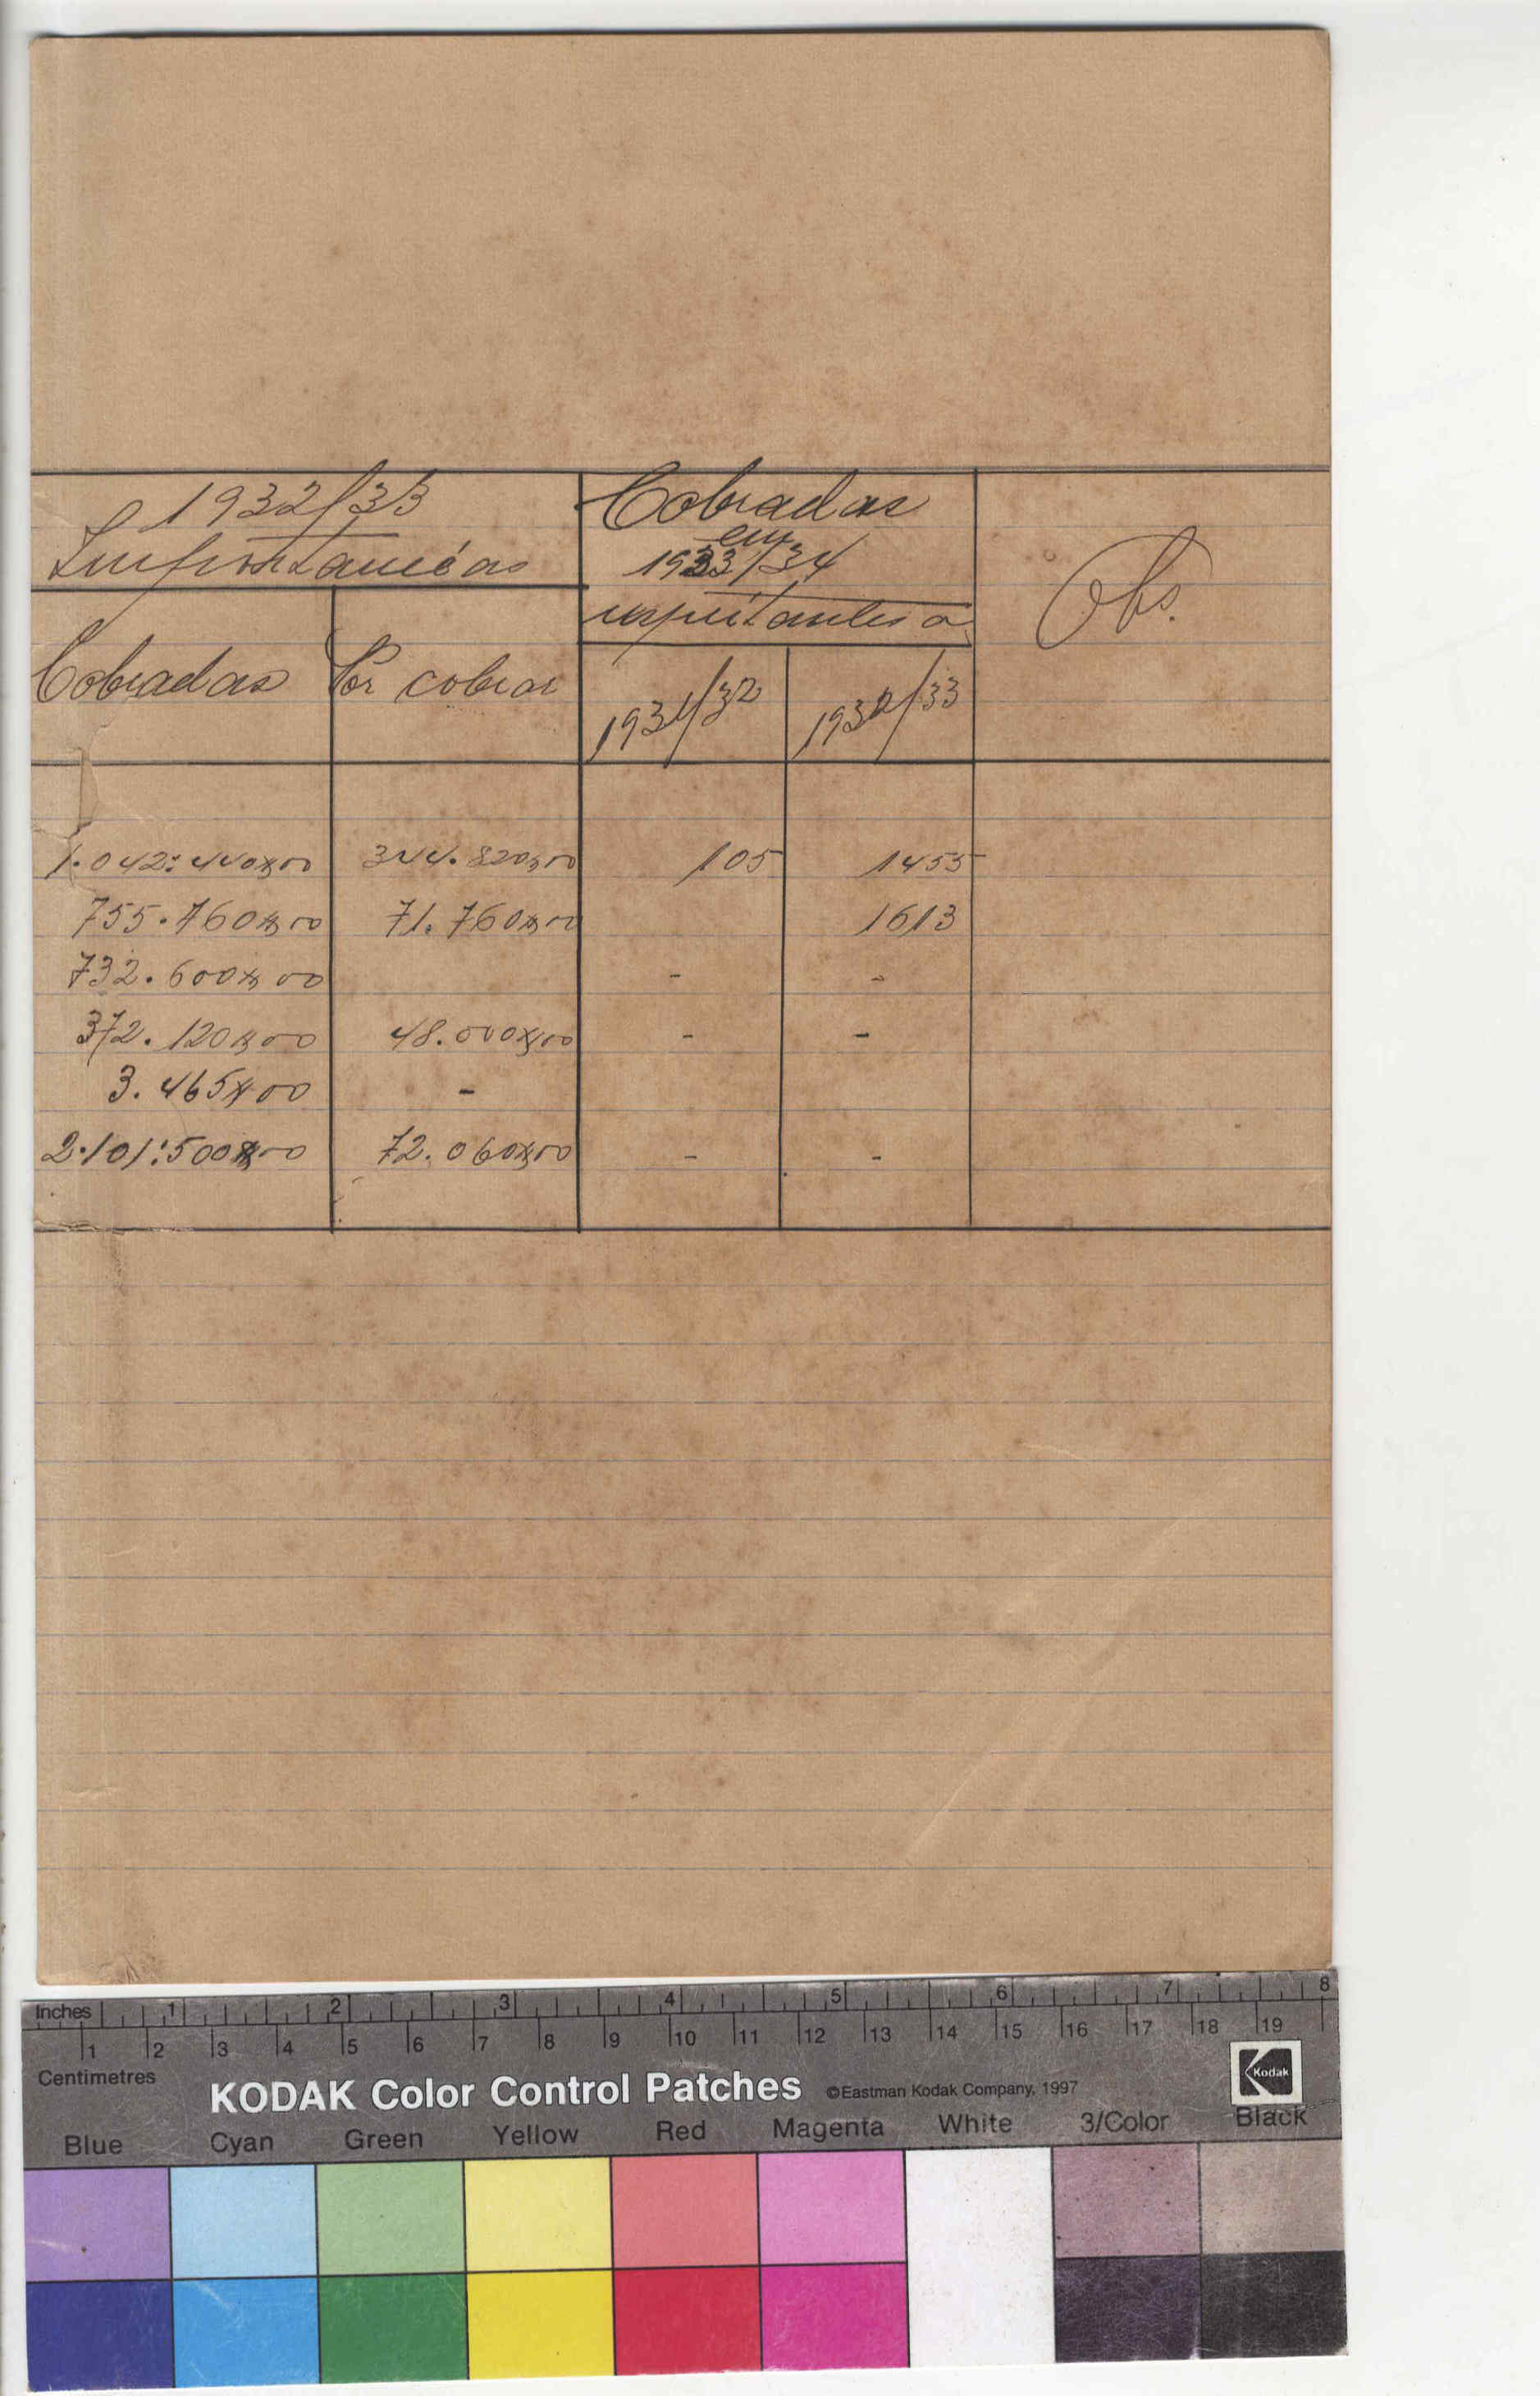 1932/33
Importancias
Cobradas
em
1933/34
respeitantes a
Obs.
Cobradas Por cobrar
1931/32 1932/33
1.042:440$00 344.820$00 105 1455
755.760$00 71.760$00 1613
732.600$00 - -
372.120$00 48.000$00 - -
3.465$00 -
2.101:500$00 72.060$00 - -
Inches 1 2 3 4 5 6 7 8
1 2 3 4 5 6 7 8 9 10 11 12 13 14 15 16 17 18 19
Centimetres
KODAK Color Control Patches ©Eastman Kodak Company, 1997 Kodak
Blue Cyan Green Yellow Red Magenta White 3/Color Black